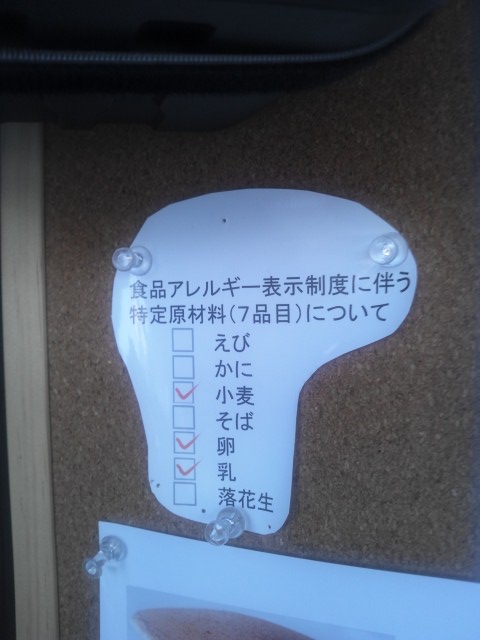 食品アレルギー表示制度に伴う
特定原材料(7品目)について
□ えび
□ かに
☑ 小麦
□ そば
☑ 卵
☑ 乳
□ 落花生